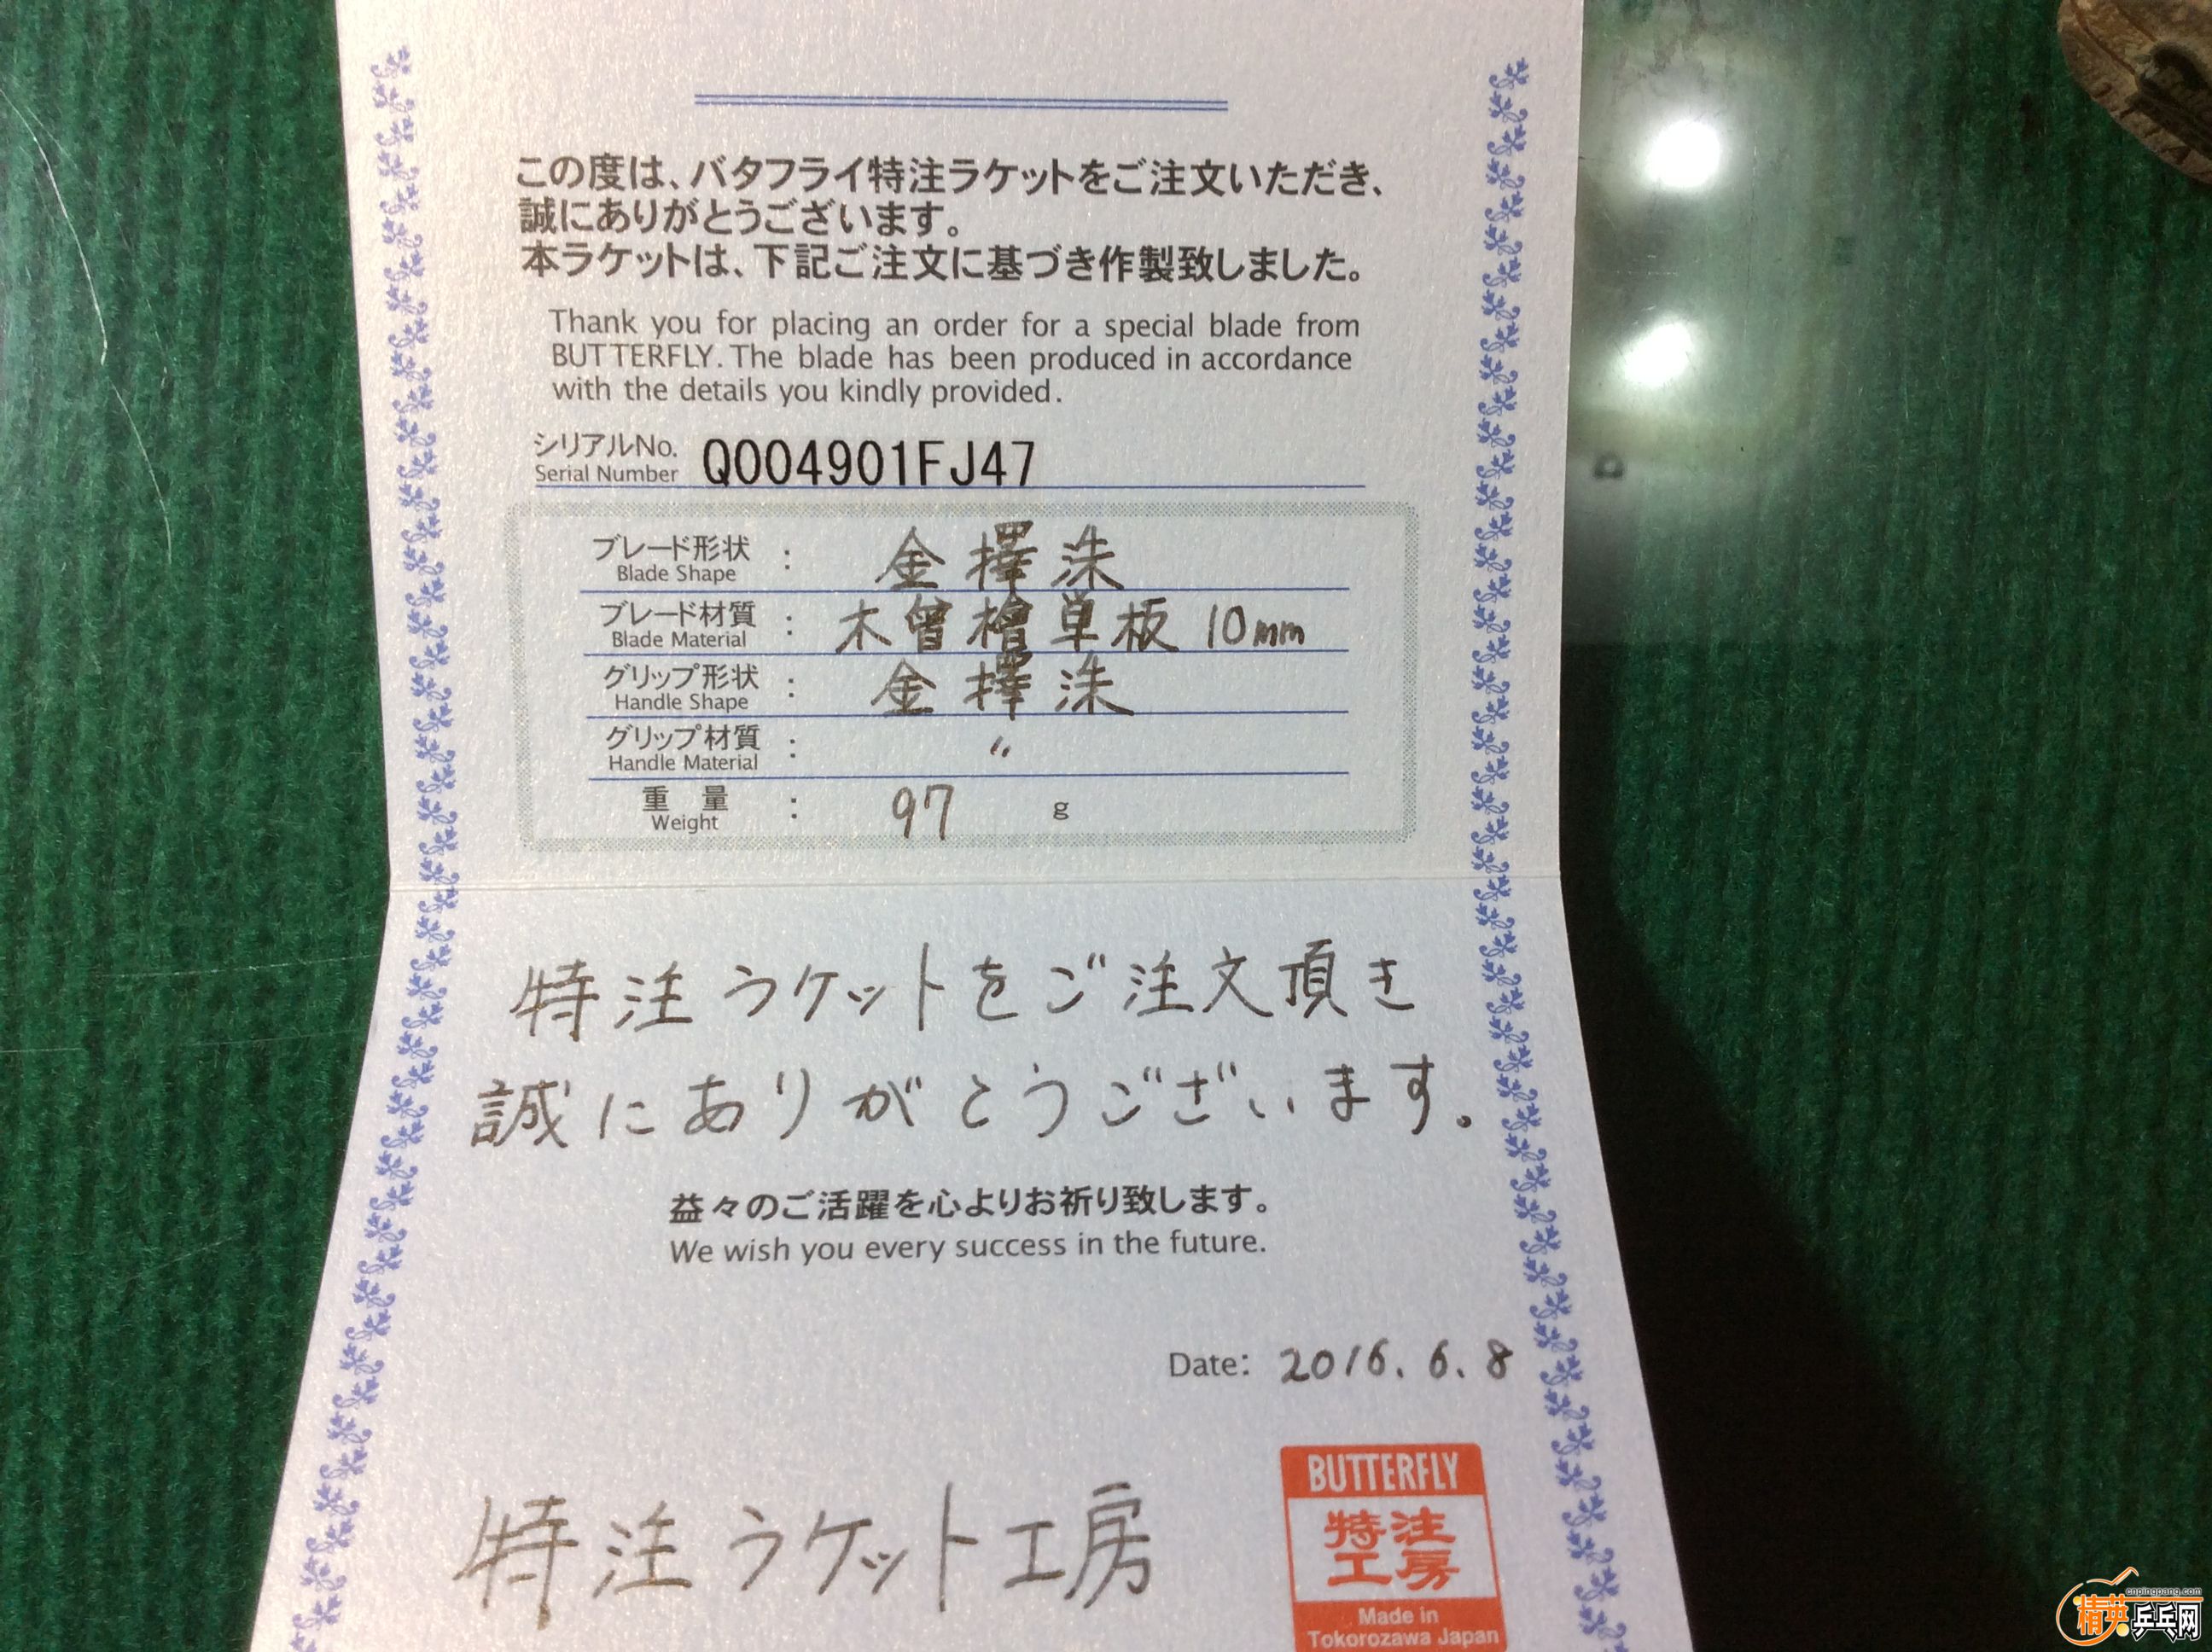 この度は、バタフライ特注ラケットをご注文いただき、
誠にありがとうございます。
本ラケットは、下記ご注文に基づき作製致しました。
Thank you for placing an order for a special blade from
BUTTERFLY. The blade has been produced in accordance
with the details you kindly provided.
シリアルNo. Q004901FJ47
Serial Number
ブレード形状 : 金擇洙
Blade Shape
ブレード材質 : 木曾檜単板 10mm
Blade Material
グリップ形状 : 金擇洙
Handle Shape
グリップ材質 : 〃
Handle Material
重量 : 97 g
Weight
特注ラケットをご注文頂き
誠にありがとうございます。
益々のご活躍を心よりお祈り致します。
We wish you every success in the future.
Date: 2016.6.8
特注ラケット工房
BUTTERFLY
特注
工房
Made in
Tokorozawa Japan
cnpingpang.com
精英乒乓网